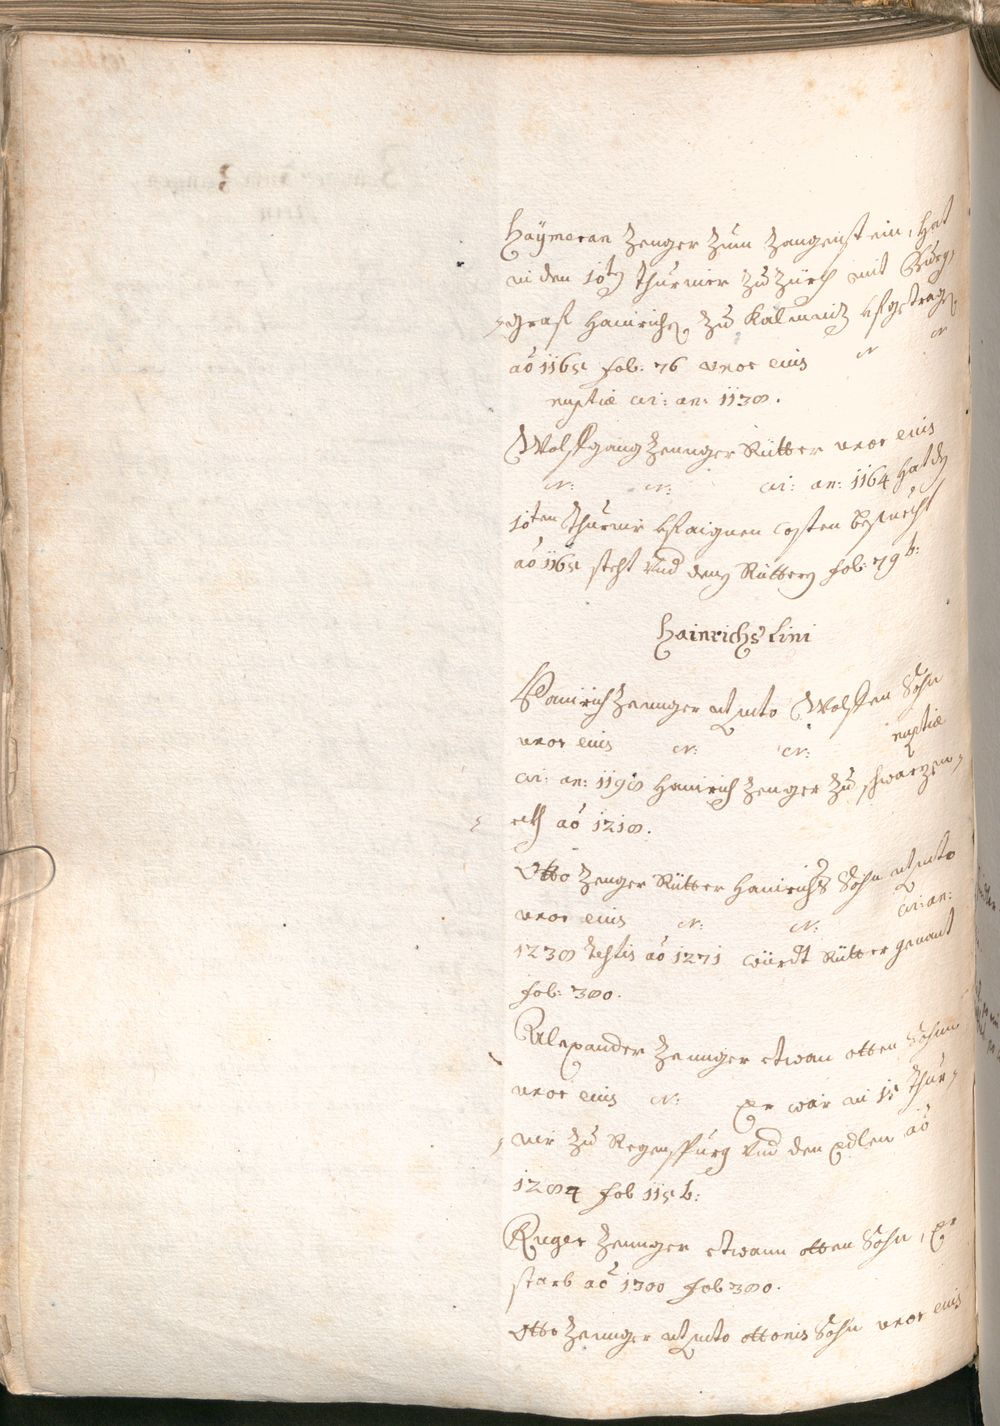 Haÿmeran Zenger zum Zangenstein, hat
in den 10tn Thurnier zu Zürch mit Burg-
graf Hainrichen zu Kalmintz
aõ 1165 fol: 76 uxor eius N N
nuptiæ ci: an: 1138.
Wolfgang Zennger Rütter uxor eius
N: N: ci: an: 1164 hat den
10ten Thurnir aignen costen besuecht
aõ 1165 steht und den Rüttern fol: 79 b:
Hainrichs Lini
Hainrich Zennger Wolfen Sohn
uxor eius N: N: nuptiæ
ci: an: 1198 Hainrich Zenger zu schwarzen-
eck aõ 1218.
Otto Zenger Rütter Hainrichs Sohn
uxor eius N: N: ci: an:
1238 testis aõ 1271 würdt Rütter genant
fol: 380.
Alexander Zennger etwan otten Sohn
uxor eius N: Er war in 15 Thur-
nir zu Regenspurg und den Edlen aõ
1284 fol 115 b:
Ruger Zennger etwann otten Sohn, Er
starb aõ 1300 fol 380.
Otto Zennger ottonis Sohn uxor eius